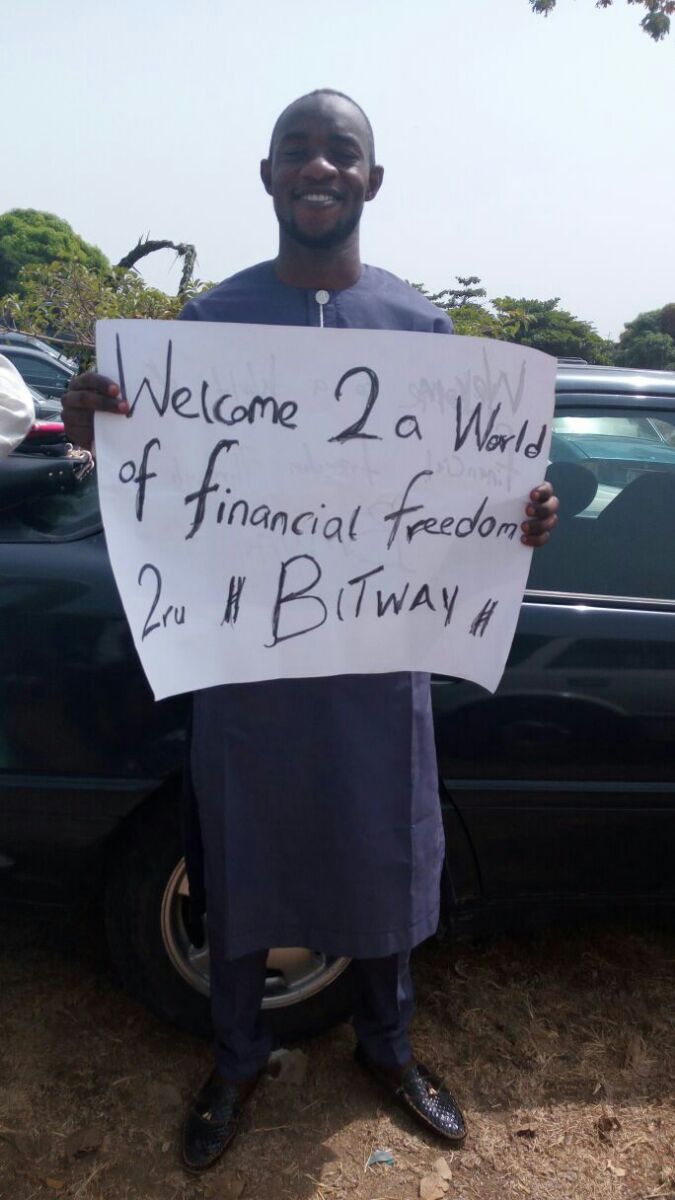 Welcome 2 a World
of financial freedom
2ru # BITWAY #